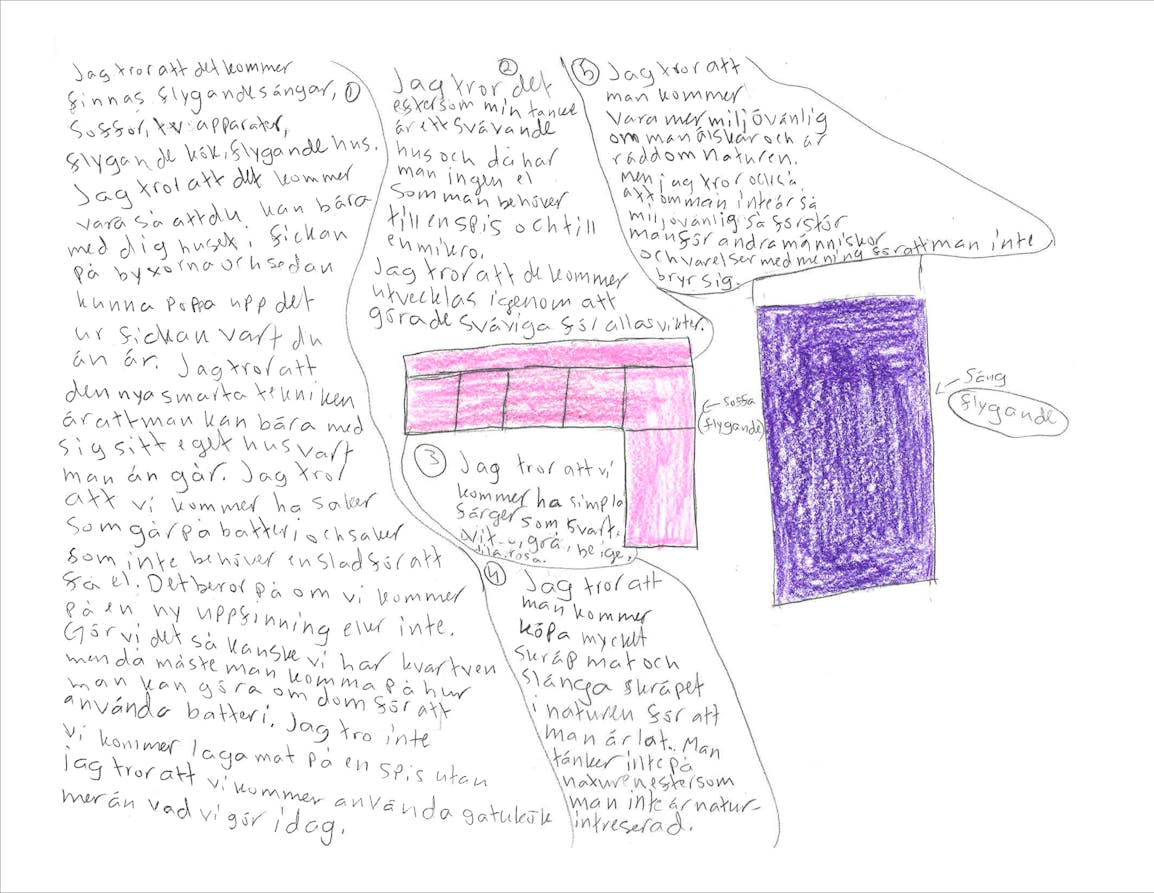 Jag tror att det kommer
finnas flygande sängar, ①
Soffor, tv apparater,
flygande kök, flygande hus.
Jag tror att det kommer
vara så att du kan bära
med dig huset i fickan
på byxorna och sedan
kunna poppa upp det
ur fickan vart du
än är. Jag tror att
den nya smarta tekniken
är att man kan bära med
sig sitt eget hus vart
man än går. Jag tror
att vi kommer ha saker
som går på batteri och saker
som inte behöver en sladd för att
få el. Det beror på om vi kommer
på en ny uppfinning eller inte.
Gör vi det så kanske vi har kvar
men då måste man komma på hur
man kan göra om dom för att
använda batteri. Jag tro inte
vi kommer laga mat på en spis utan
jag tror att vi kommer använda gatukök
mer än vad vi gör idag.
②
Jag tror det
eftersom min tanke
är ett svävande
hus och då har
man ingen el
som man behöver
till en spis och till
en mikro.
Jag tror att de kommer
utvecklas igenom att
göra de sväviga för allas vikter.
③ Jag tror att vi
kommer ha simpla
färger som svart,
vit, grå, beige,
lila, rosa.
④ Jag tror att
man kommer
köpa mycket
skräp mat och
slänga skräpet
i naturen för att
man är lat. Man
tänker inte på
naturen eftersom
man inte är natur-
intreserad.
⑤ Jag tror att
man kommer
vara mer miljövänlig
om man älskar och är
rädd om naturen.
men jag tror också
att om man inte är så
miljövänlig så förstör
man för andra människor
och varelser med mening för att man inte
bryr sig.
← Soffa
flygande
← Säng
flygande